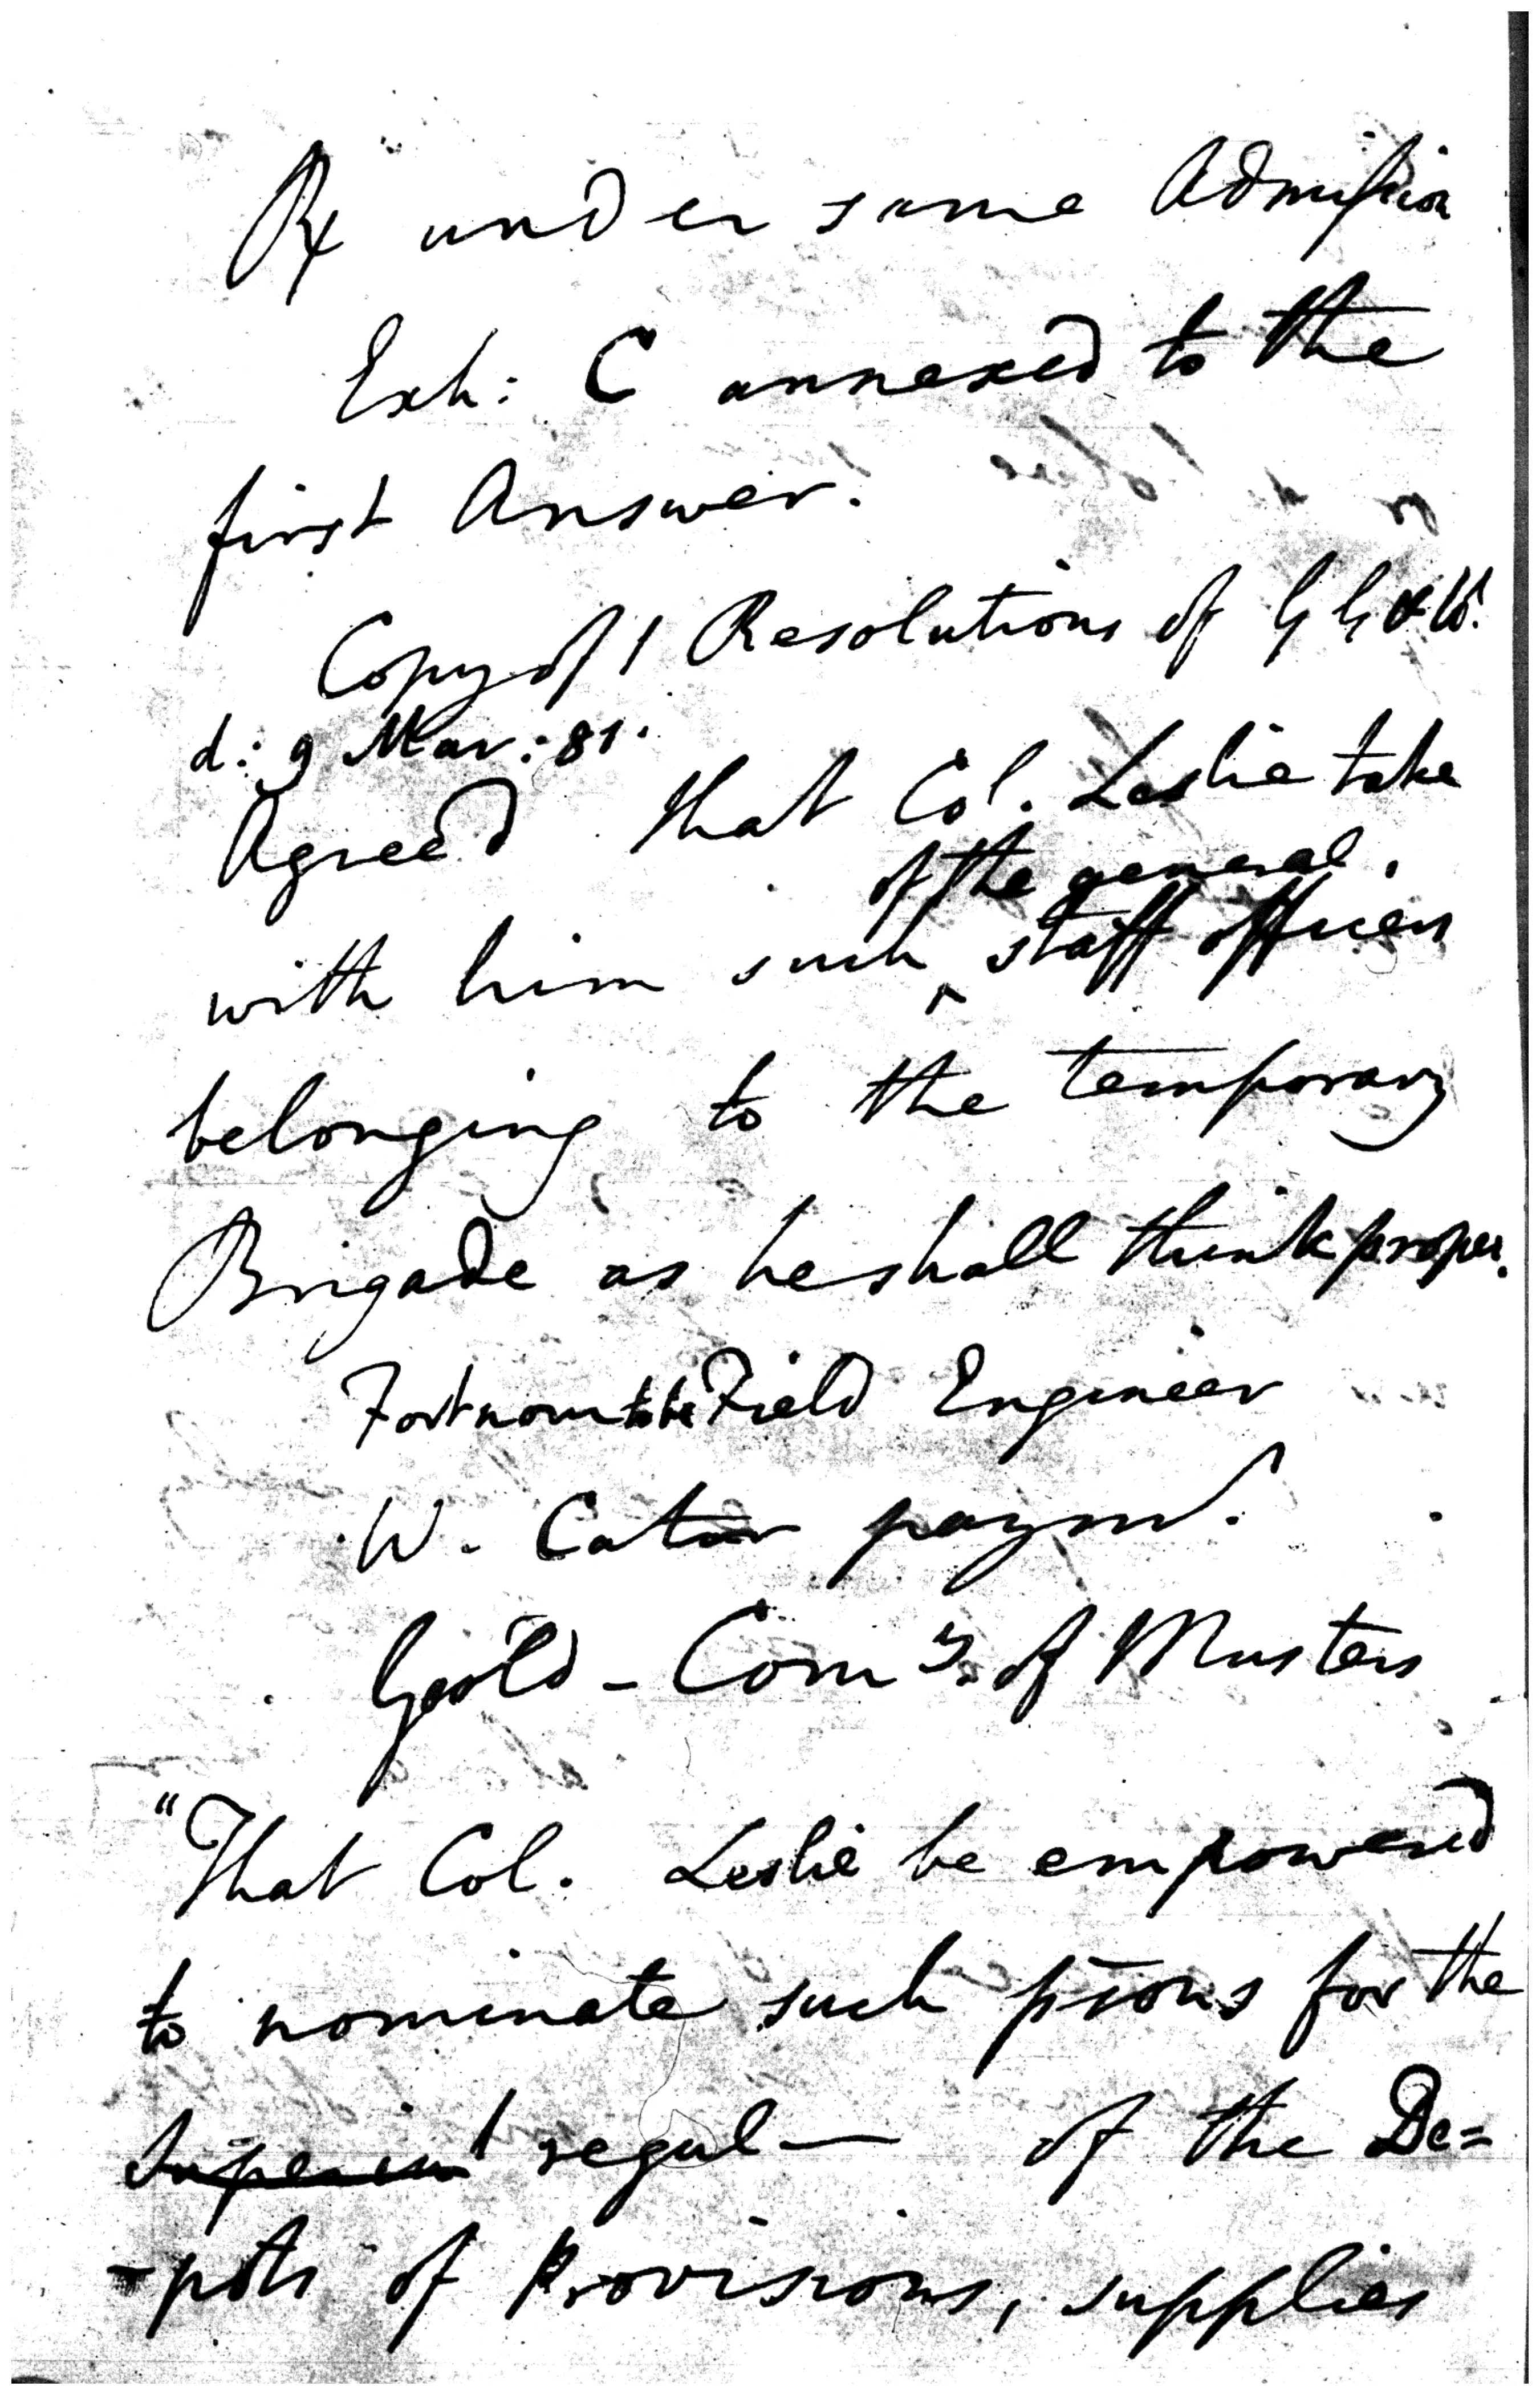 Rx under same Admission
Exh: C annexed to the
first Answer.
Copy of 1 Resolutions of G G & C.
d: 9 Mar: 81.
Agreed that Col. Leslie take
of the general
with him such ^ staff officers
belonging to the temporary
Brigade as he shall think proper.
Fortnom to be Field Engineer
W. Cator paymr.
Goold - Comy. of Musters
"That Col. Leslie be empowered
to nominate such psons for the
regul— of the De=
-pots of Provisions, supplies